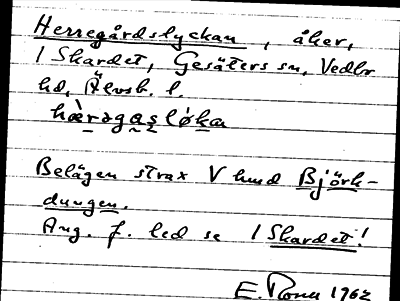 Herregårdslyckan, åker,
1 Skardet, Gesäters sn, Vedbo
hd, Älvsb. l.
hæ̀rəgas̱ḻo̱ḵa
Belägen strax V hmd Björk-
dungen.
Ang. f. led se 1 Skardet!
E. 1962